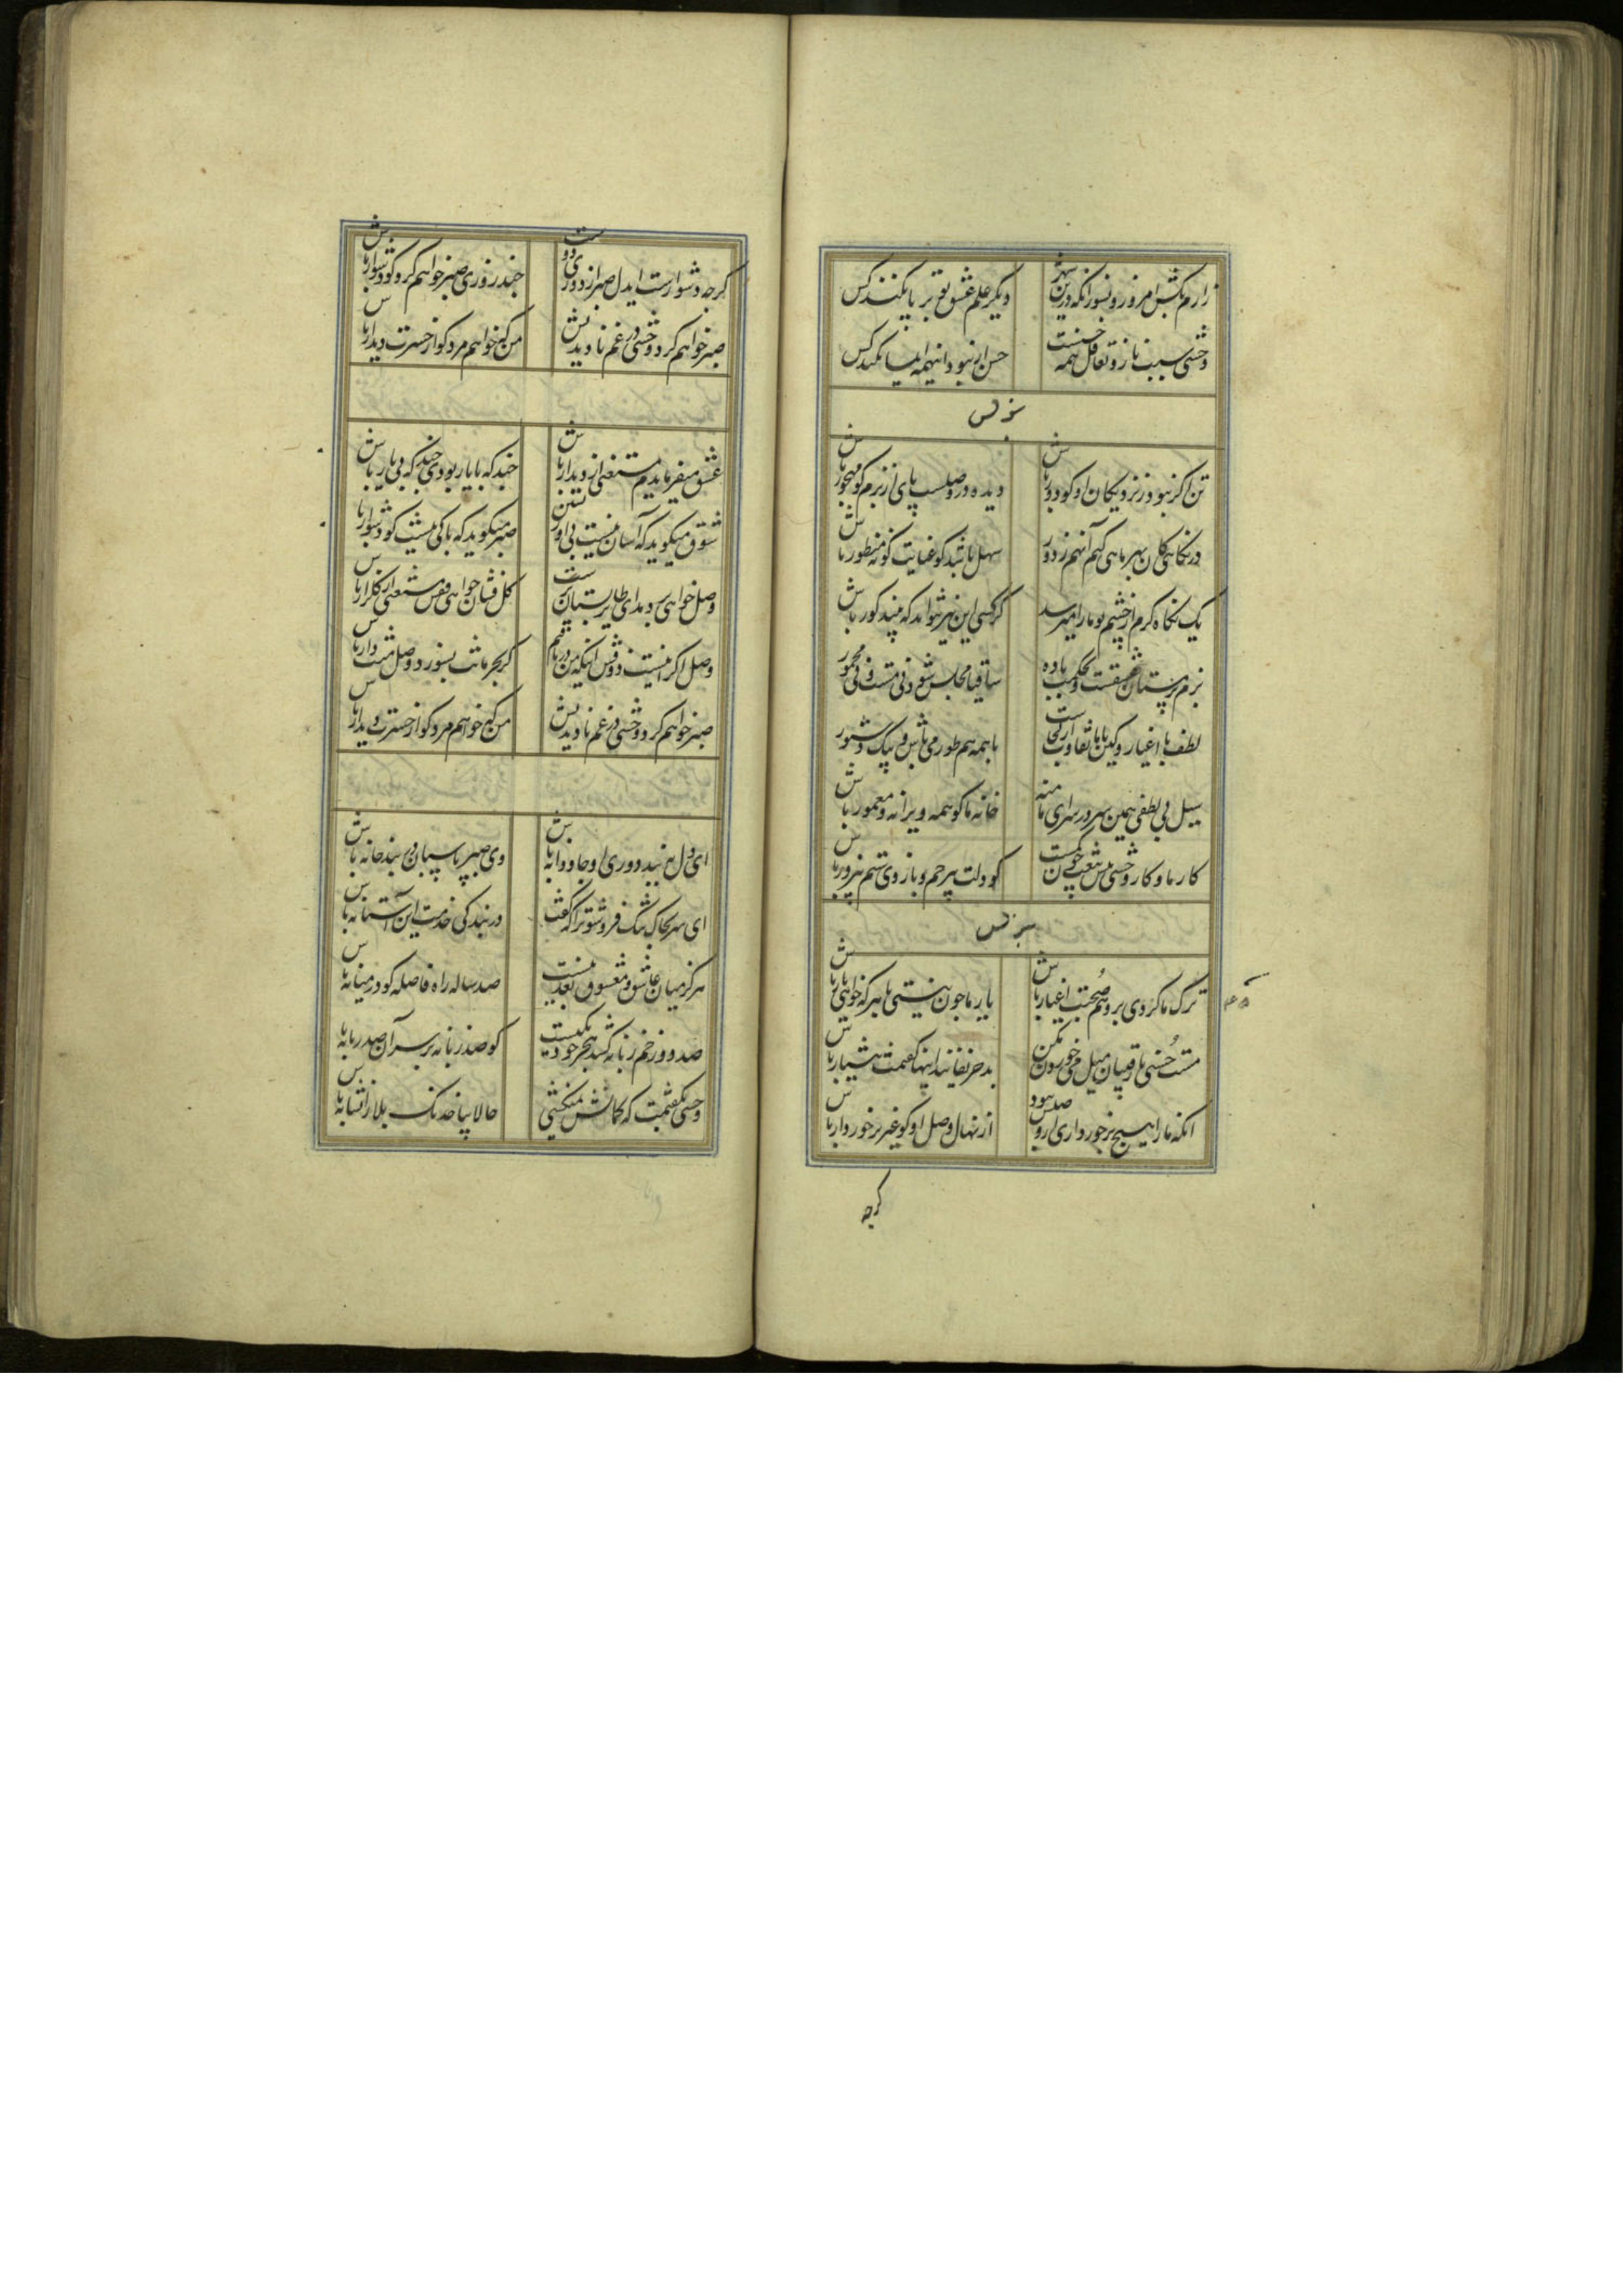 زارم بکش امروز و بسوز انکه درین شهر دیکر علم عشق تو برپا نکند کس
وحشی سبب ناز و تغافل همه حسنست حسن ار نبود اینهمه ایسا نکند کس
تن اکر نبود ز نزدیکان او کو دور باش دیده در وصلست پای از بزم کو مهجور باش
در نکاهی کان بهر ماهی کنم انهم ز دور سهل باشد کو عنایت کونه منظور باش
یک نکاه کرم از چشم تو ما را میرسد کر کسی این نیز نتواند که بیند کور باش
بزم بدمستان عشقست و بحکمت باده ساقیا مجلس شو و نی مست و نی مخمور
لطف با اغیار و کین با ما تفاوت از کجاست با همه هم طور می باش و بیک دستور
سیل بی لطفی همین سر در سرای ما منه خانه ما کو همه ویرانه و معمور باش
کار ما و کار وحشی پیش تیغت چون یکیست کو دلت بیرحم و بازوی ستم پرزور باش
ترک ما کردی برو هم صحبت اغیار باش یار ما چون نیستی با هر که خواهی یار باش
مست حسنی با رقیبان میل می خوردن مکن بد حریفانند اینها کفتمت هشیار باش
انکه ما را هیچ برخورداری از وصلش نبود از نهال وصل او کو غیر برخوردار باش
کرچه
کرچه دشوارست ایدل صبر از دوری دوست چند روزی صبر خواهم کرد کو دشوار باش
صبر خواهم کرد وحشی در غم نادیدنش من که خواهم مرد کو از حسرت دیدار باش
عشق میفرمایدم مستغنی از دیدار باش چند که با یار بودی چند که بی یار باش
شوق میکوید که آسان نیست بی او زیستن صبر میکوید که باکی نیست کو دشوار باش
وصل خواری بر دهد ای طایر بستان پرست کلستان خواهی قفس مستغنی از کلزار باش
وصل اکر اینست و ذوقش اینکه من دریافتم کر بحرمانت بسوزد وصل منت دار باش
صبر خواهم کرد وحشی در غم نادیدنش من که خواهم مرد کو از حسرت دیدار باش
ای دل به بند دوری او جاودانه باش وی صبر پاسبان در بندخانه باش
ای سر بخاک تنک فروشو ترا که کفت در بندکی خدمت این آستانه باش
هرکز میان عاشق و معشوق بعد نیست صد ساله راه فاصله کو در میانه باش
صد دوزخم زبانه کشد هجر خود یکیست کو صد زبانه بر سر آن صد زبانه باش
وحشی نکفتمت که کمانش نمیکشی حالا بیا خدنک بلا را نشانه باش